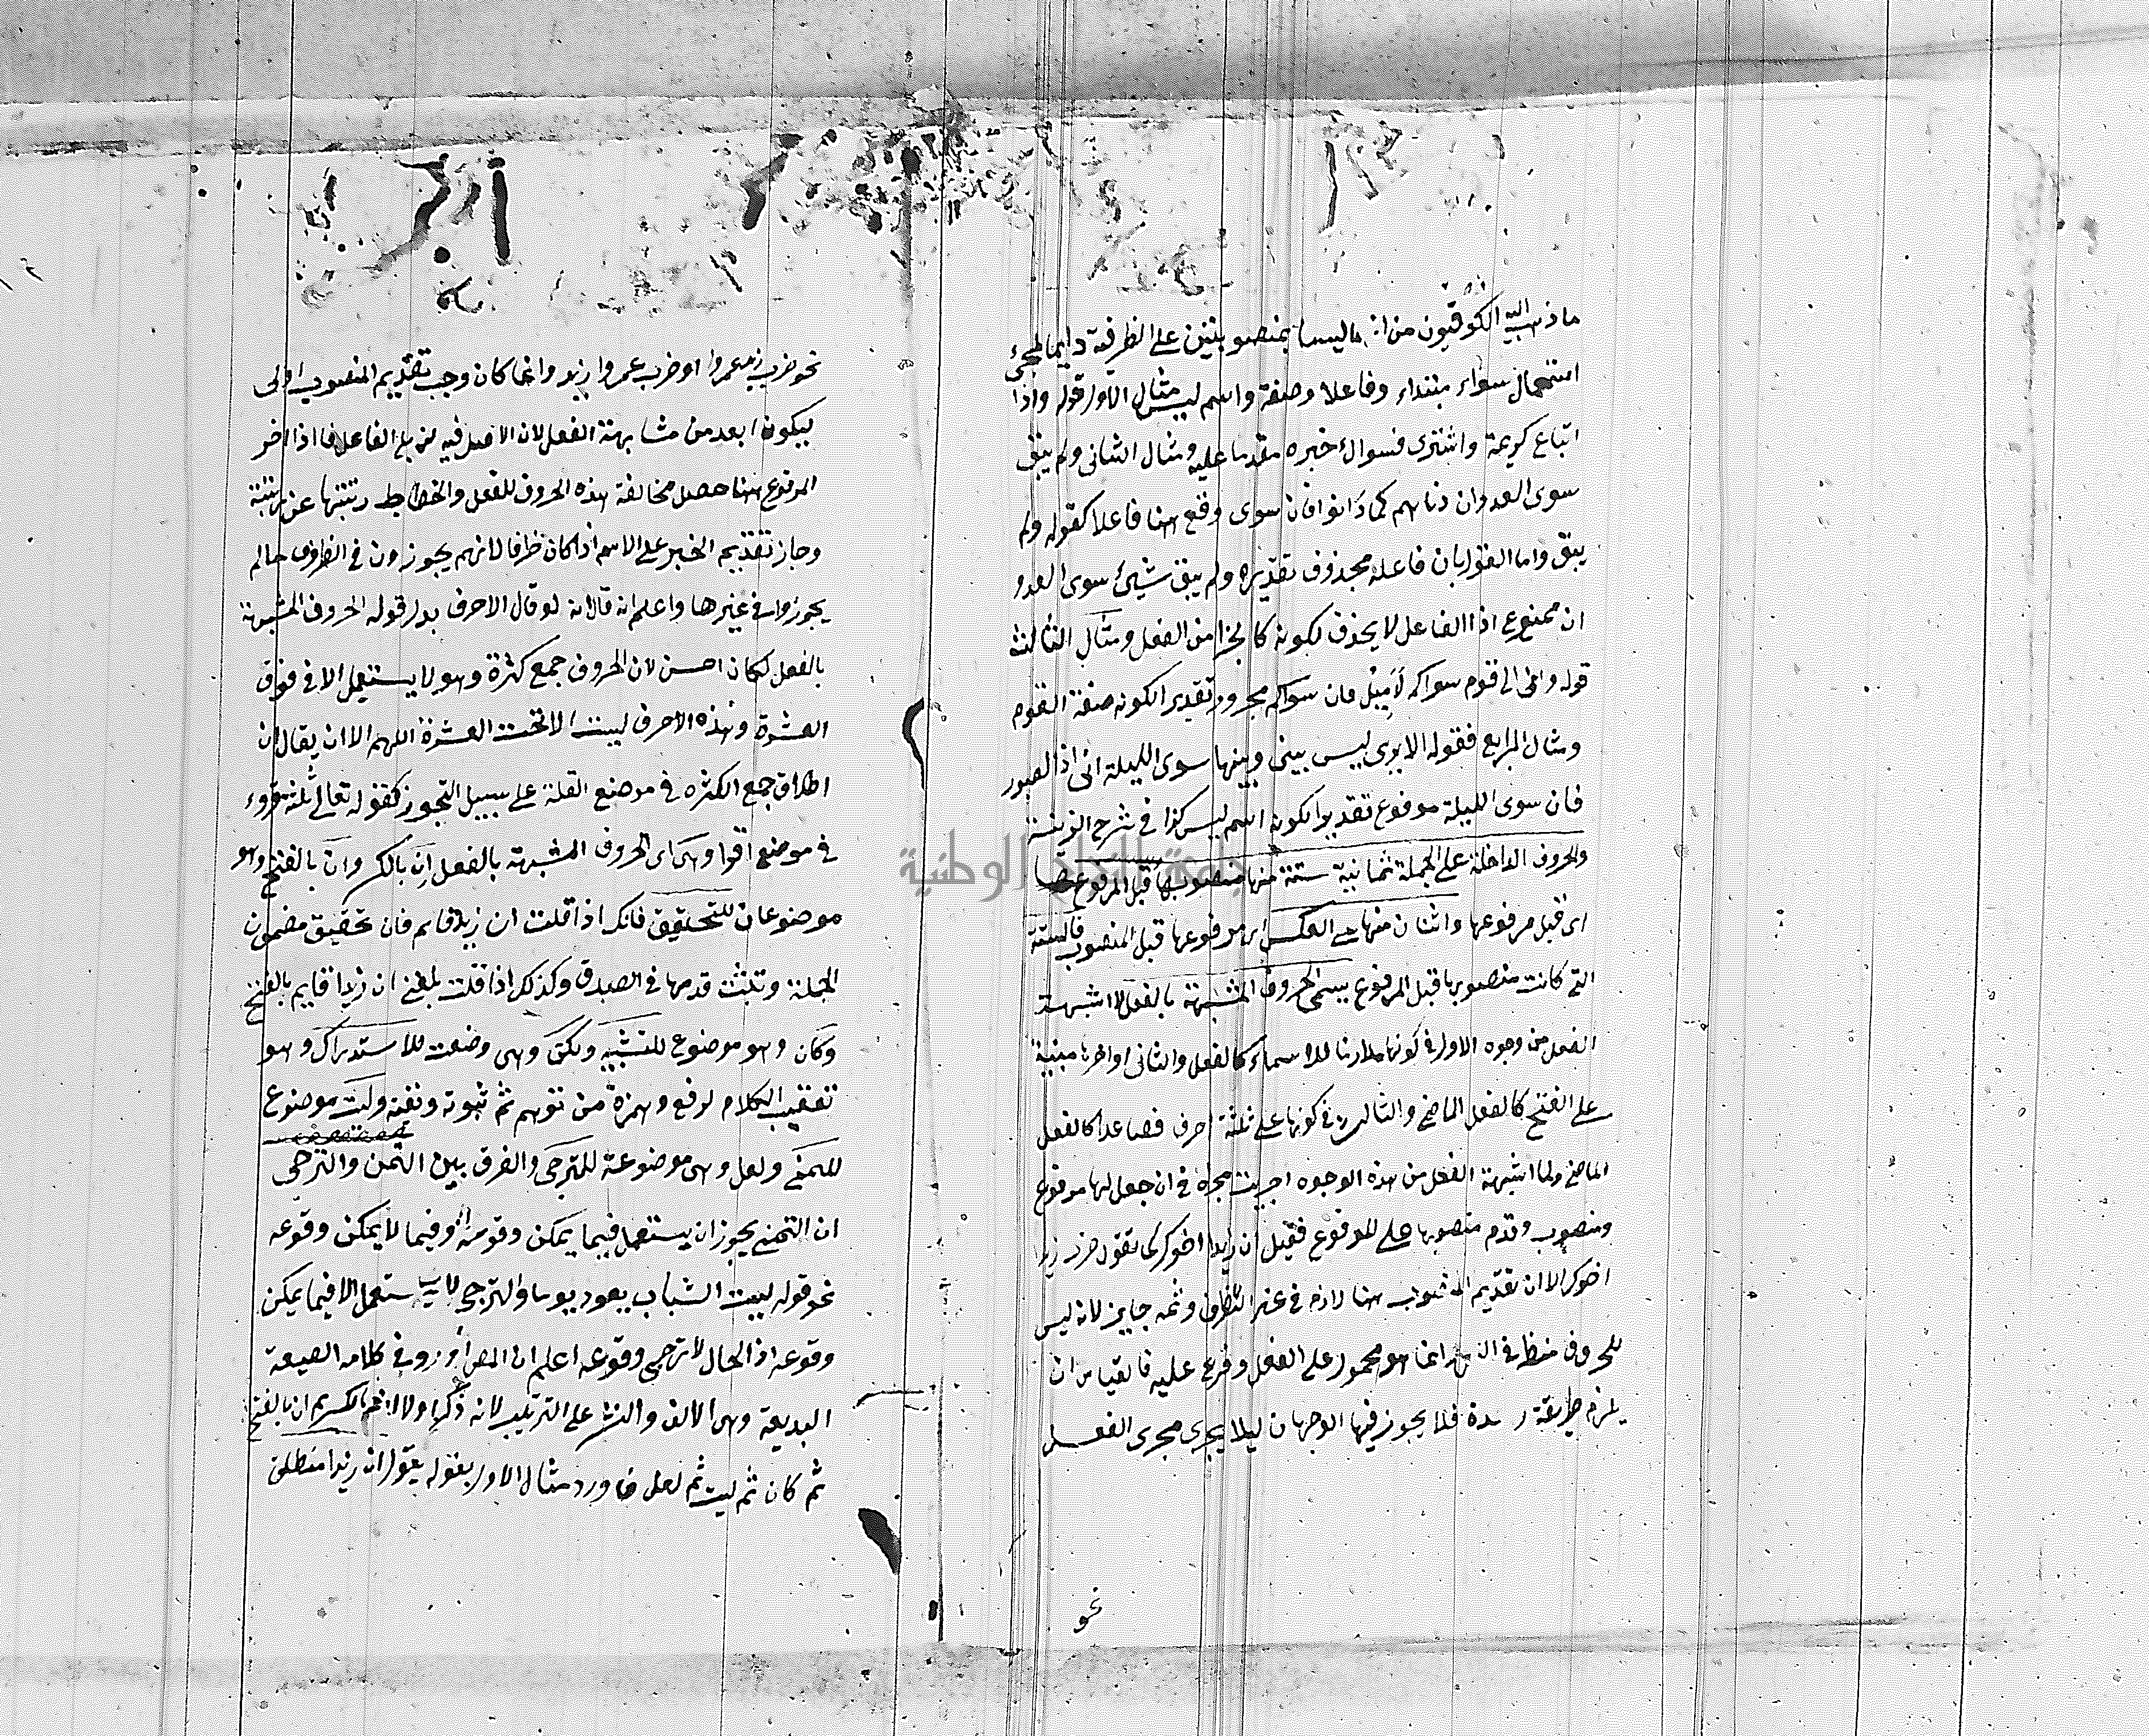 ما ذهب اليه الكوفيون من انهما ليسا بمنصوبتين على الظرفية دايما لمجئ
استعمال سواء مبتداء وفاعلا وصفة واسم ليس مثال الاول قوله واذا
اتباع كريمة واشترى فسواك خبره مقدما عليه ومثال الثانى ولم يبق
سوى العدوان دناهم كما دانوا فان سوى وقع هنا فاعلا كقوله ولم
يبق واما القول بان فاعله محذوف تقديره ولم يبق شيئ سوى العدو
ان ممنوع اذ الفاعل لا يحذف لكونه كالجزا من الفعل ومثال الثالث
قوله وانى الى قوم سواكم لاميل فان سواكم مجرور تقديرا لكونه صفة القوم
ومثال الرابع فقوله الا يروى ليس بينى وبينها سوى الليلة انى اذا لصبور
فان سوى الليلة مرفوع تقديرا لكونه اسم ليس كذا فى شرح
والحروف الداخلة على الجملة ثمانية ستة منها منصوبها قبل المرفوع
اى قبل مرفوعها واثنان منها على العكس اى مرفوعها قبل المنصوب فالستة
التى كانت منصوبها قبل المرفوع يسمى الحروف المشبهة بالفعل لا اشبهت
الفعل من وجوه الاول فى كونها ملازما للاسماء كالفعل والثانى اواخرها مبنية
على الفتح كالفعل الماضى والثالث فى كونها على ثلثة احرف فصاعدا كالفعل
الماضى ولما اشبهة الفعل من هذه الوجوه اجريت مجراه فى ان جعل لها مرفوع
ومنصوب وقدم منصوبها على المرفوع فقيل ان زيدا اخوك كما تقول ضرب زيدا
اخوك الا ان تقديم المنصوب هنا لازم فى غير الظرف وثمه جايز لانه ليس
للحروف انما هو محمول على الفعل وفرع عليه فالقياس ان
يلزم طريقة واحدة فلا يجوز فيها الوجهان ليلا يجرى مجرى الفعل
نحو
نحو ضرب زيد عمروا او ضرب عمروا زيد وانما كان وجب تقديم المنصوب اولى
ليكون ابعد من مشابهة الفعل لان الاصل فيه ان يلى الفاعل فاذا اخر
المرفوع هنا حصل مخالفة هذه الحروف للفعل وانحطاط رتبتها عن رتبته
وجاز تقديم الخبر على الاسم اذا كان ظرفا لانهم يجوزون فى الظروف ما لم
يجوزوا فى غيرها واعلم انه قال انه لو قال الاحرف بدل قوله الحروف المشبهة
بالفعل لكان احسن لان الحروف جمع كثرة وهو لا يستعمل الا فى فوق
العشرة وهذه الاحرف ليست الا تحت العشرة اللهم الا ان يقال ان
اطلاق جمع الكثره فى موضع القلة على سبيل التجوز كقوله تعالى ثلثة قروء
فى موضع اقرا وهى اى الحروف المشبهة بالفعل إن بالكسر وأن بالفتح وهو
موضوعان للتحقيق فانك اذا قلت ان زيدا قايم فان تحقيق مضمون
الجملة وتثبت قدمها فى الصدق وكذلك اذا قلت بلغنى ان زيدا قايم بالفتح
وكان وهو موضوع للتشبيه ولكن وهى وضعت للاستدراك وهو
تعقيب الكلام لرفع وهمزة من توهم ثم ثبوته ونفيه وليت موضوع
للتمنى ولعل وهى موضوعة للترجى والفرق بين التمن والترجى
ان التمنى يجوز ان يستعمل فيما يمكن وقوعه وفيما لا يمكن وقوعه
نحو قوله ليت الشباب يعود يوما والترجى لا يستعمل الا فيما يمكن
وقوعه اذ المحال لا ترجى وقوعه اعلم ان المص اورد فى كلامه الصيعة
البديعة وهى الالف والنشر على الترتيب لانه ذكر اولا ان بالكسر ثم ان بالفتح
ثم كان ثم ليت ثم لعل فاورد مثال الاول بقوله يقول ان زيدا منطلق
جامعة النجاح الوطنية